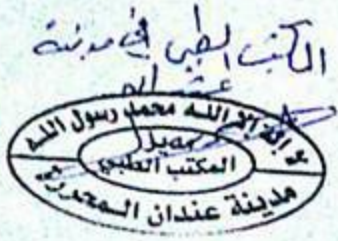 المكتب الطبي في مدينة
عندان
لا إله إلا الله محمد رسول الله
المكتب الطبي
مدينة عندان المحررة